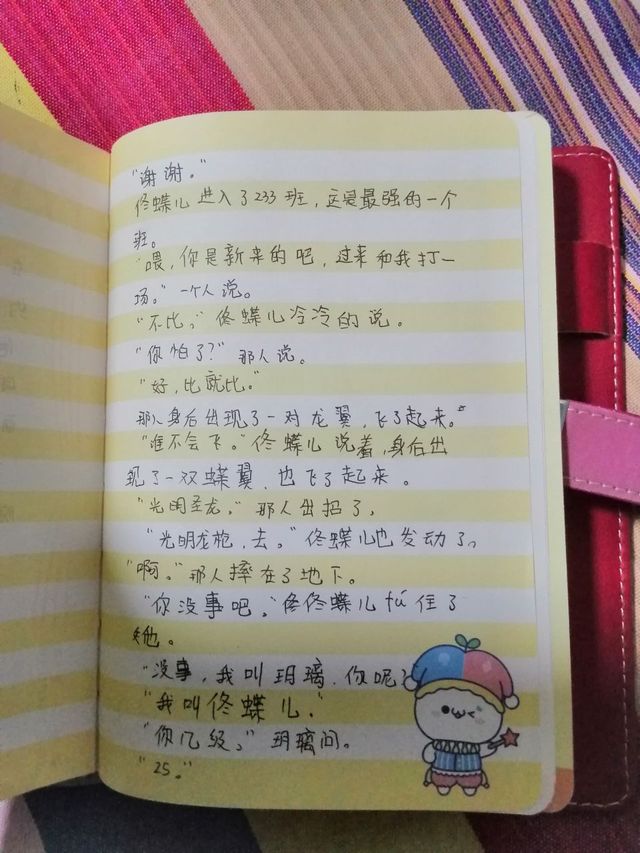 "谢谢。"
佟蝶儿进入了233班，这是最强的一个
班。
"喂，你是新来的吧，过来和我打一
场。"一个人说。
"不比。"佟蝶儿冷冷的说。
"你怕了？"那人说。
"好，比就比。"
那人身后出现了一对龙翼，飞了起来。
"谁不会飞。"佟蝶儿说着，身后出
现了一双蝶翼，也飞了起来。
"光明圣龙。"那人出招了，
"光明龙枪，去。"佟蝶儿也发动了。
"啊。"那人摔在了地下。
"你没事吧。"佟佟蝶儿fú住了
他。
"没事，我叫玥璃，你呢？
"我叫佟蝶儿。"
"你几级。"玥璃问。
"25。"